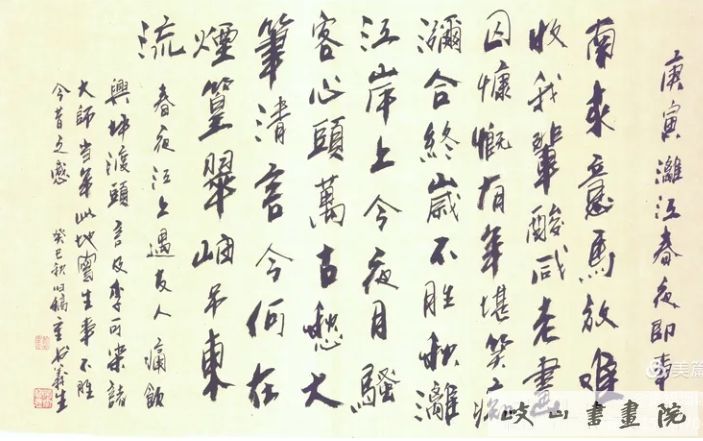 庚寅灕江春夜即事
南來意馬放難
收我輩酸咸老畫
囚慷慨有年堪笑
瀰合終歲不勝秋灕
江岸上今夜月騷
客心頭萬古愁大
筆清言今何在
煙篁翠岫吊東
流 春夜江上遇友人痛飲
興坪渡頭言及李可染諸
大師当年此地寫生事不胜
今昔之感 癸巳秋旧稿重 義生
美篇
岐山書畫院